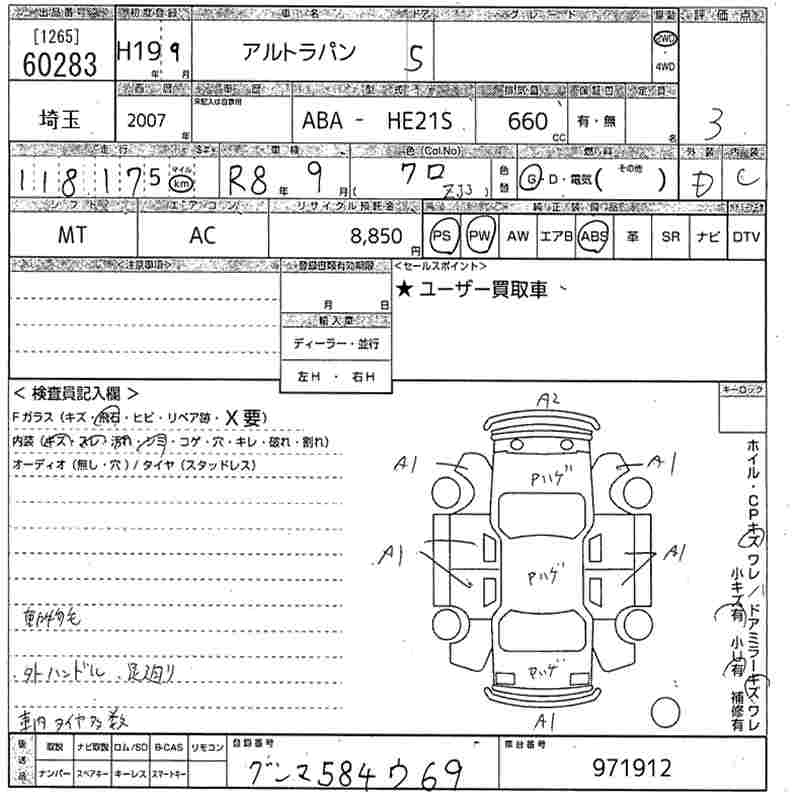 出品番号 初度登録 車名 ドア グレード 駆動 評価点
[1265]
60283
H19 年 9 月
アルトラパン
S
2WD
4WD
3
埼玉
西暦 車歴 型式 排気量 保証書 定員
未記入は自家用
2007 年
ABA - HE21S
660 cc
有・無
名
走行 車検 色(Col.No) 燃料 外装 内装
118175 マイル km
R8 年 9 月
クロ
( ZJ3 )
色替
G・D・電気( その他 )
D
C
シフト エアコン リサイクル預託金 純正装備品
MT
AC
8,850 円
PS PW AW エアB ABS 革 SR ナビ DTV
<注意事項>
登録書類有効期限
月 日
輸入車
ディーラー・並行
左H ・ 右H
<セールスポイント>
★ ユーザー買取車
< 検査員記入欄 >
Fガラス (キズ・飛石・ヒビ・リペア跡・X要)
内装 (キズ・スレ・汚れ・シミ・コゲ・穴・キレ・破れ・割れ)
オーディオ (無し・穴) / タイヤ (スタッドレス)
キーロック
A2
A1
A1
Pハゲ
A1
A1
Pハゲ
Pハゲ
A1
ホイル・CPキズ ワレ / ドアミラーキズ ワレ
小キズ有 小凹有 補修有
外ハンドル 足廻り
後送品
取説 ナビ取説 ロム/SD B-CAS リモコン
ナンバー スペアキー キーレス スマートキー
登録番号
グンマ 584 ウ 69
車台番号
971912